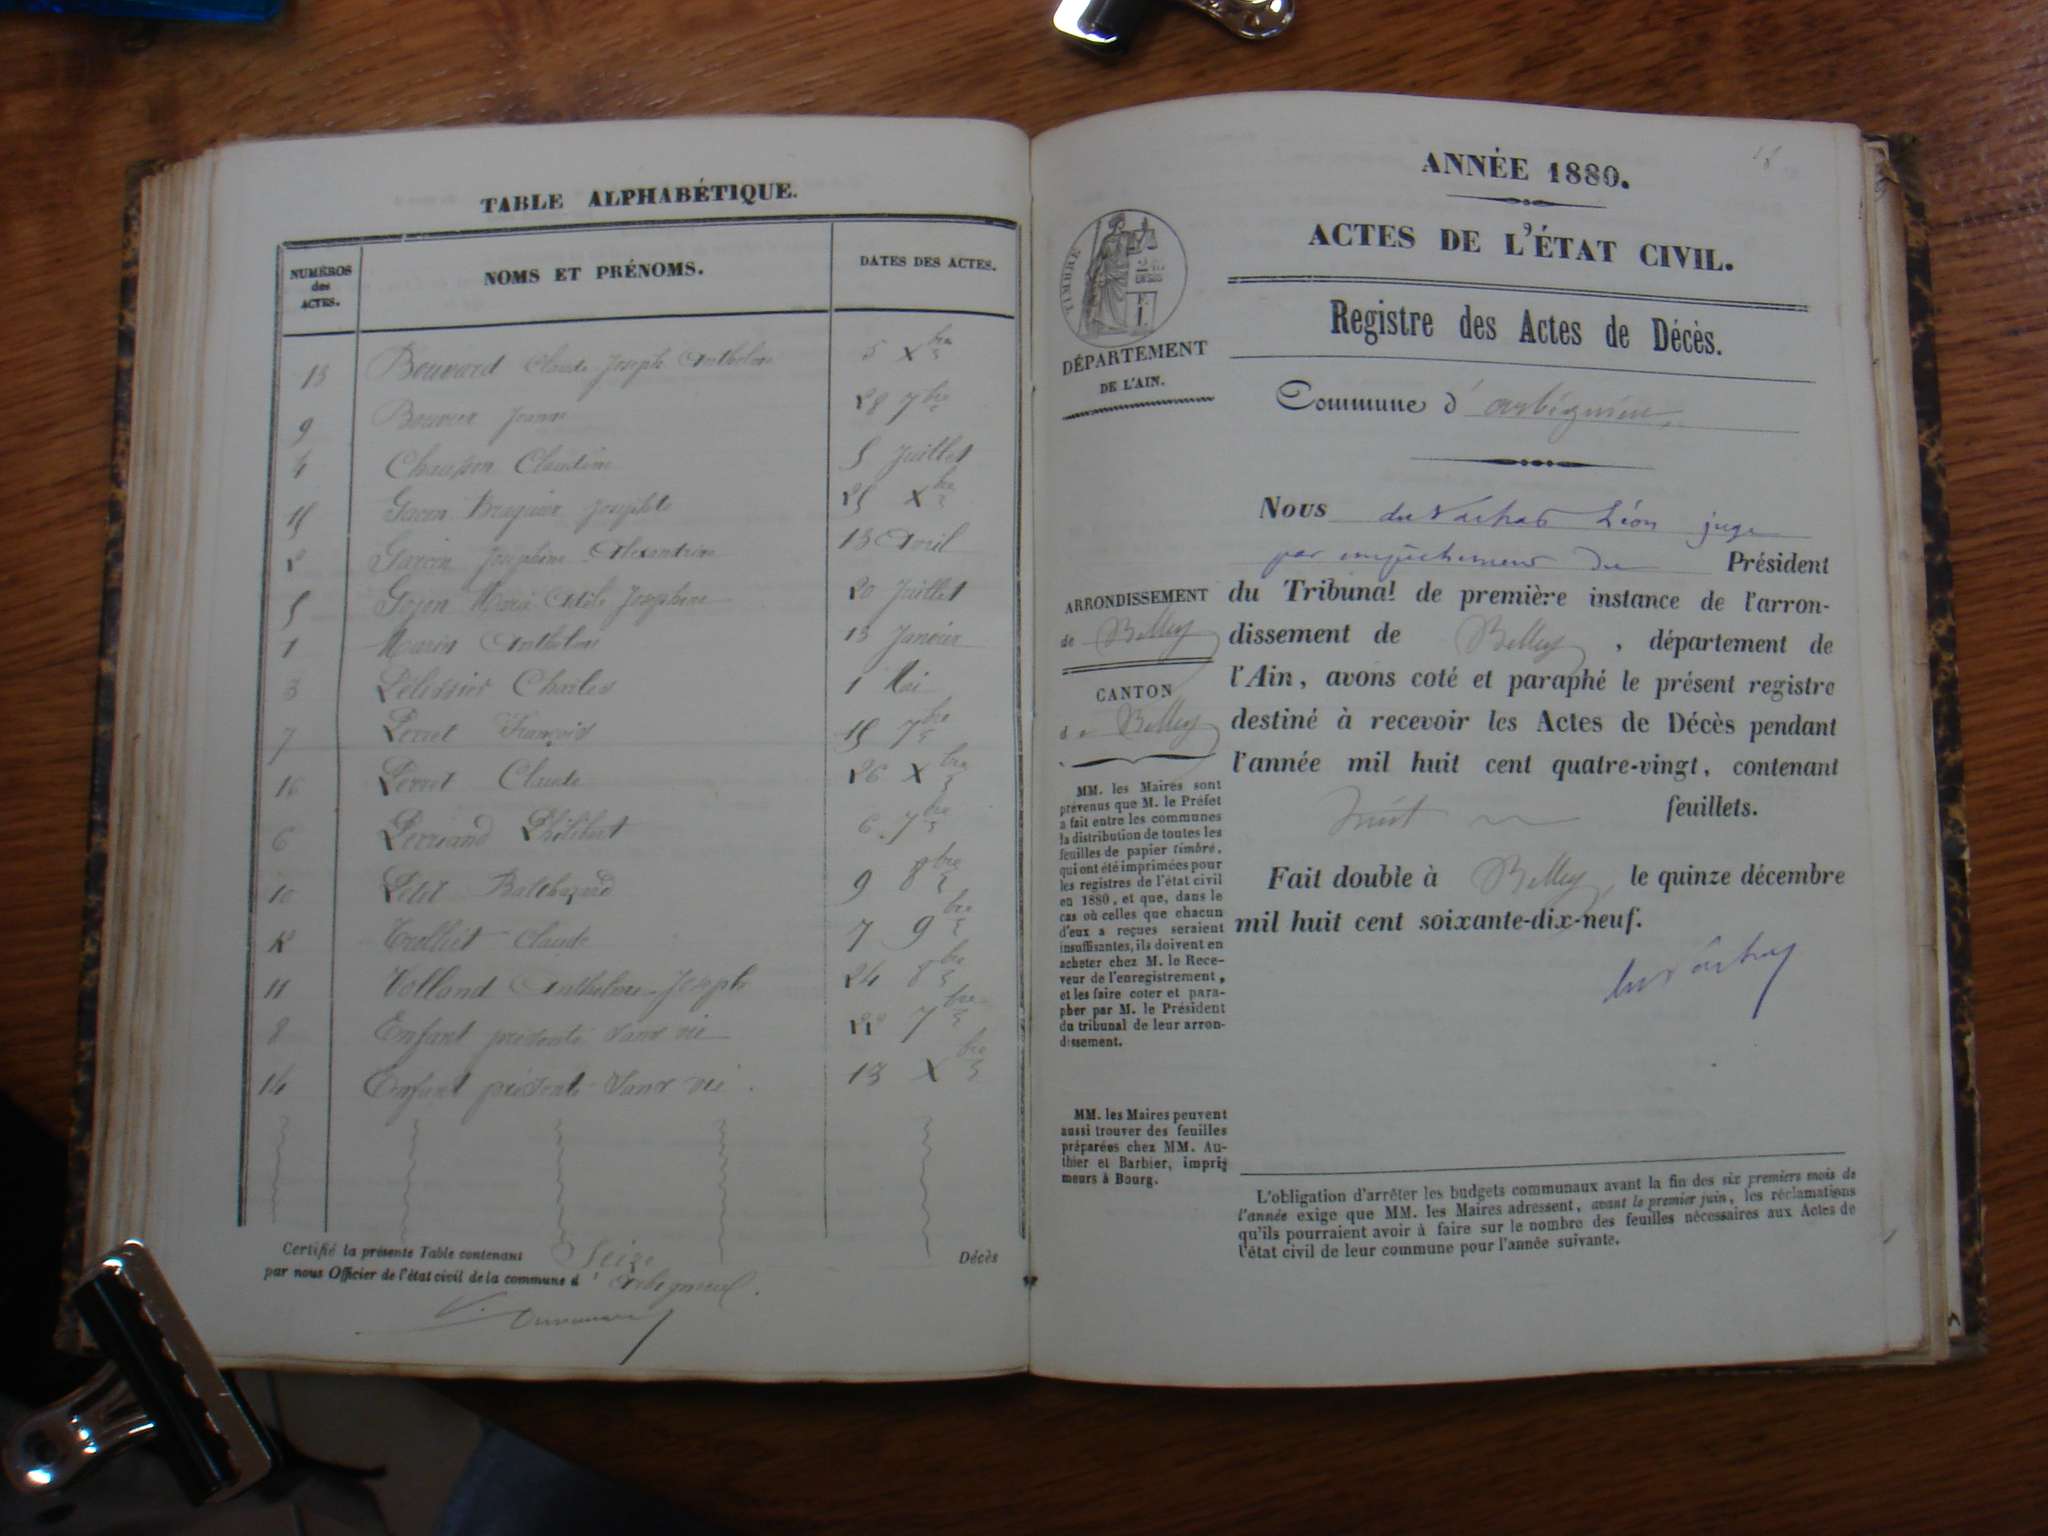 TABLE ALPHABÉTIQUE.
NUMÉROS des ACTES. NOMS ET PRÉNOMS. DATES DES ACTES.
13 Bouvard Claude Joseph Anthelme 5 Xbre
9 Bouvier Jeanne 28 7bre
4 Claudine 5 Juillet
15 Joseph 25 Xbre
2 Garin Joséphine Alexandrine 13 Avril
5 Gojon Marie Adèle Joséphine 20 Juillet
1 Marin Anthelme 13 Janvier
3 Pélissier Charles 1 Mai
7 Perret François 15 7bre
16 Perret Claude 26 Xbre
6 Perriand Philibert 6 7bre
10 Petit Balthazard 9 8bre
12 Trolliet Claude 7 9bre
11 Volland Anthelme Joseph 24 8bre
8 Enfant présenté sans vie 22 7bre
14 Enfant présenté sans vie. 13 Xbre
Certifié la présente Table contenant Seize Décès
par nous Officier de l'état civil de la commune d' Arbignieu.
18
ANNÉE 1880.
ACTES DE L'ÉTAT CIVIL.
Registre des Actes de Décès.
TIMBRE
DÉPARTEMENT
DE L'AIN.
Commune d' arbignieu
Nous Léon juge
par empêchement du Président
du Tribunal de première instance de l'arron-
dissement de Belley, département de
l'Ain, avons coté et paraphé le présent registre
destiné à recevoir les Actes de Décès pendant
l'année mil huit cent quatre-vingt, contenant
huit feuillets.
Fait double à Belley, le quinze décembre
mil huit cent soixante-dix-neuf.
ARRONDISSEMENT
de Belley
CANTON
de Belley
MM. les Maires sont
prévenus que M. le Préfet
a fait entre les communes
la distribution de toutes les
feuilles de papier timbré,
qui ont été imprimées pour
les registres de l'état civil
en 1880, et que, dans le
cas où celles que chacun
d'eux a reçues seraient
insuffisantes, ils doivent en
acheter chez M. le Rece-
veur de l'enregistrement,
et les faire coter et para-
pher par M. le Président
du tribunal de leur arron-
dissement.
MM. les Maires peuvent
aussi trouver des feuilles
préparées chez MM. Au-
thier et Barbier, impri-
meurs à Bourg.
L'obligation d'arrêter les budgets communaux avant la fin des six premiers mois de
l'année exige que MM. les Maires adressent, avant le premier juin, les réclamations
qu'ils pourraient avoir à faire sur le nombre des feuilles nécessaires aux Actes de
l'état civil de leur commune pour l'année suivante.